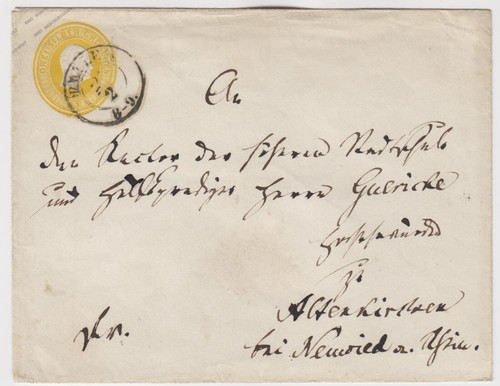 An
den Rector der höheren Stadtschule
und Hülfsprediger Herrn Guericke
zu
Altenkirchen
bei Neuwied a. Rhein.
Fr.
8-9.